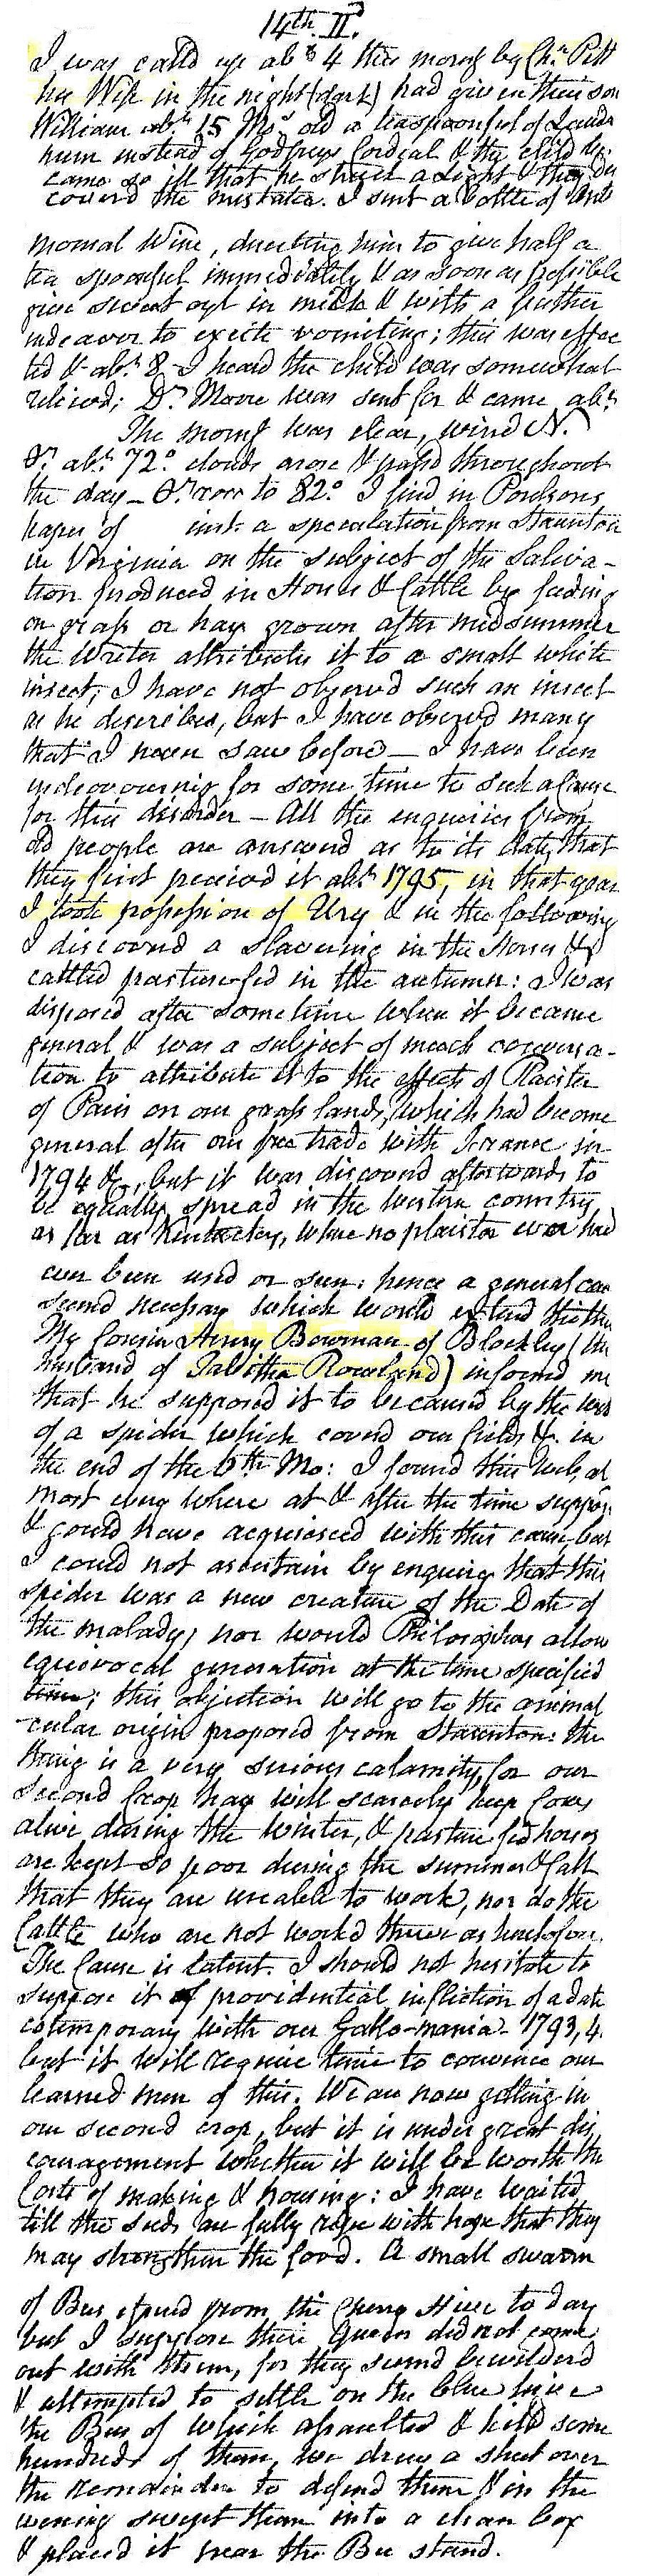 14th. II.
I was calld up abt 4 this morng by Chn. Pitt
his Wife in the night (dark) had given their son
William abt. 15 Mos. old a teaspoonful of Lauda
num instead of Godfreys Cordial & the child be
came so ill that he struck a light & they dis
coverd the mistake. I sent a bottle of Anti
monial Wine, directing him to give half a
tea spoonful immediately & as soon as possible
give sweet oyl in milk & with a feather
endeavor to excite vomiting; this was effec
ted & abt. 8 I heard the child was somewhat
relieved; Dr. Moore was sent for & came abt.
The morng was clear, wind N.
Tr. abt. 72° clouds arose & passd throughout
the day – Tr. rose to 82° I find in Poulsons
paper of inst. a speculation from Staunton
in Virginia on the subject of the Saliva –
tion produced in Horses & Cattle by feeding
on grass or hay grown after midsummer
the Writer attributes it to a small white
insect; I have not observd such an insect
as he describes, but I have observd many
that I never saw before – I have been
endeavouring for some time to seek a Cause
for this disorder – All the enquiries from
old people are answerd as to its date, that
they first perceivd it abt. 1795, in that year
I took possession of Ury & in the following
I discoverd a Slavering in the Horses &
cattled pasture fed in the autumn: I was
disposed after sometime when it became
general & was a subject of much conversa –
tion to attribute it to the effects of Plaister
of Paris on our grass lands, which had become
general after our free trade with France in
1794 &c, but it was discoverd afterwards to
be equally spread in the Western country
as far as Kentuckey, where no plaister ever had
ever been used or seen: hence a general cau
seemd necessary which would extend thither
My Cousin Henry Bowman of Blockley (the
husband of Tabitha Rowland) informd me
that he supposed it to be caused by the web
of a spider which coverd our fields &c. in
the end of the 6th Mo: I found this Web al
most every where at & after the time suppos.
& could have acquiesced with this cause, but
I could not ascertain by enquiry that this
spider was a new creature of the Date of
the malady, nor would Philosophers allow
equivocal generation at the time specified
time; this objection will go to the animal
cular origin proposed from Staunton: the
thing is a very serious calamity, for our
second crop hay will scarcely keep Cows
alive during the Winter, & pasture fed horses
are kept so poor during the summer & fall
that they are unable to work, nor do the
Cattle who are not workd thrive as heretofore.
The Cause is latent. I should not hesitate to
suppose it of providential infliction of a date
cotemporary with our Gallo-mania – 1793, 4.
but it will require time to convince our
learned men of this. We are now getting in
our second crop, but it is under great dis
couragement whether it will be worth the
Costs of making & housing: I have waited
till the seeds are fully ripe with hope that they
may strengthen the food. A small swarm
of Bees issued from the Cherry Hive to day
but I suppose their Queen did not come
out with them, for they seemd bewilderd
& attempted to settle on the blue hive
the Bees of which assaulted & killd some
hundreds of them, we drew a sheet over
the remainder to defend them & in the
evening swept them into a clean box
& placed it near the Bee stand.